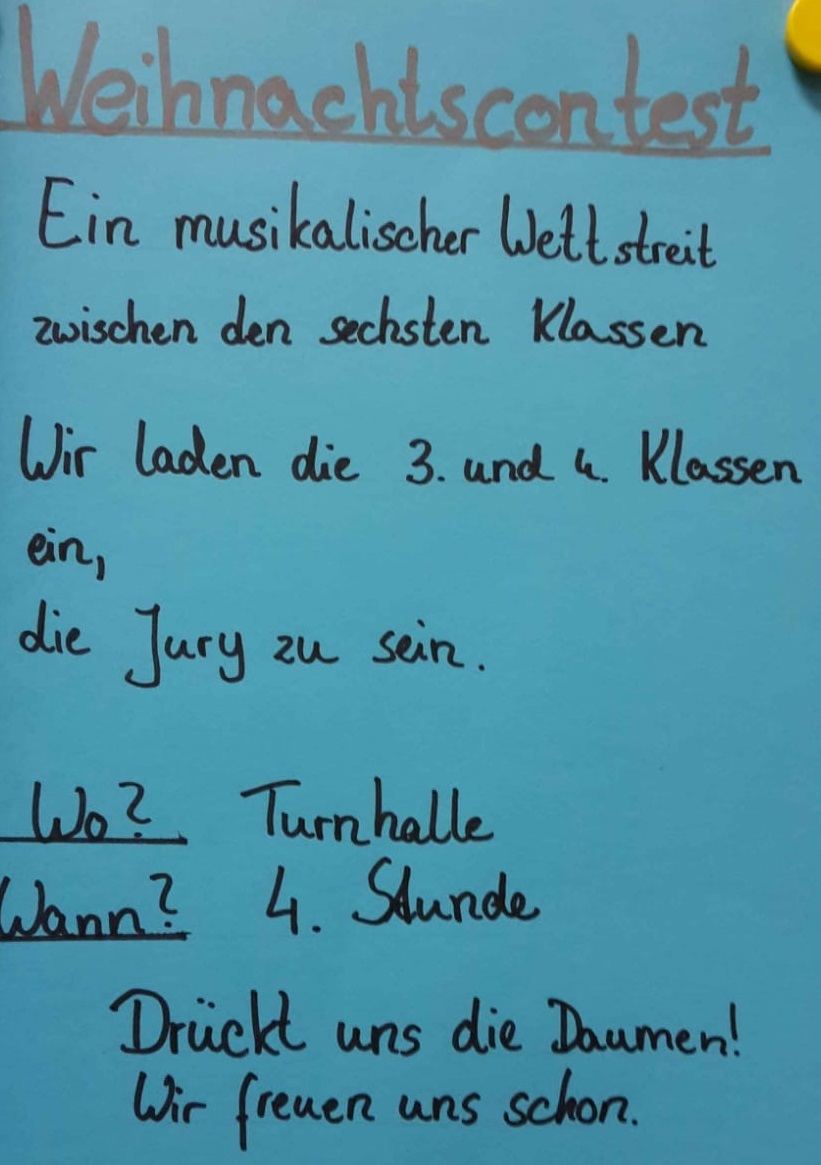 Weihnachtscontest
Ein musikalischer Wettstreit
zwischen den sechsten Klassen
Wir laden die 3. und 4. Klassen
ein,
die Jury zu sein.
Wo? Turnhalle
Wann? 4. Stunde
Drückt uns die Daumen!
Wir freuen uns schon.